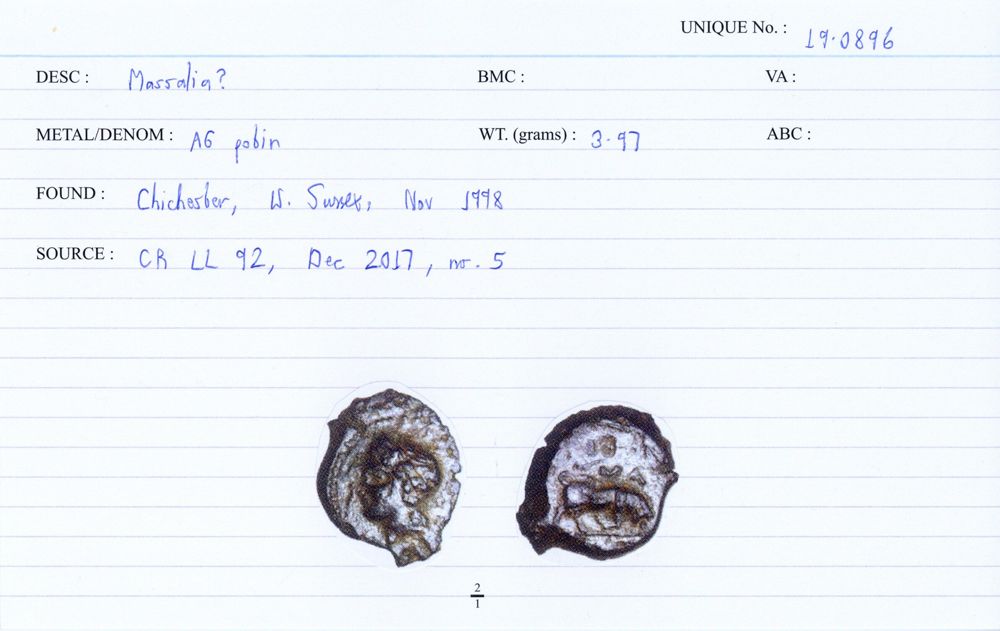 UNIQUE No. : 19.0896
DESC : Massalia? BMC : VA :
METAL/DENOM : AE potin WT. (grams) : 3.97 ABC :
FOUND : Chichester, W. Sussex, Nov 1998
SOURCE : CR LL 92, Dec 2017, no. 5
2
1